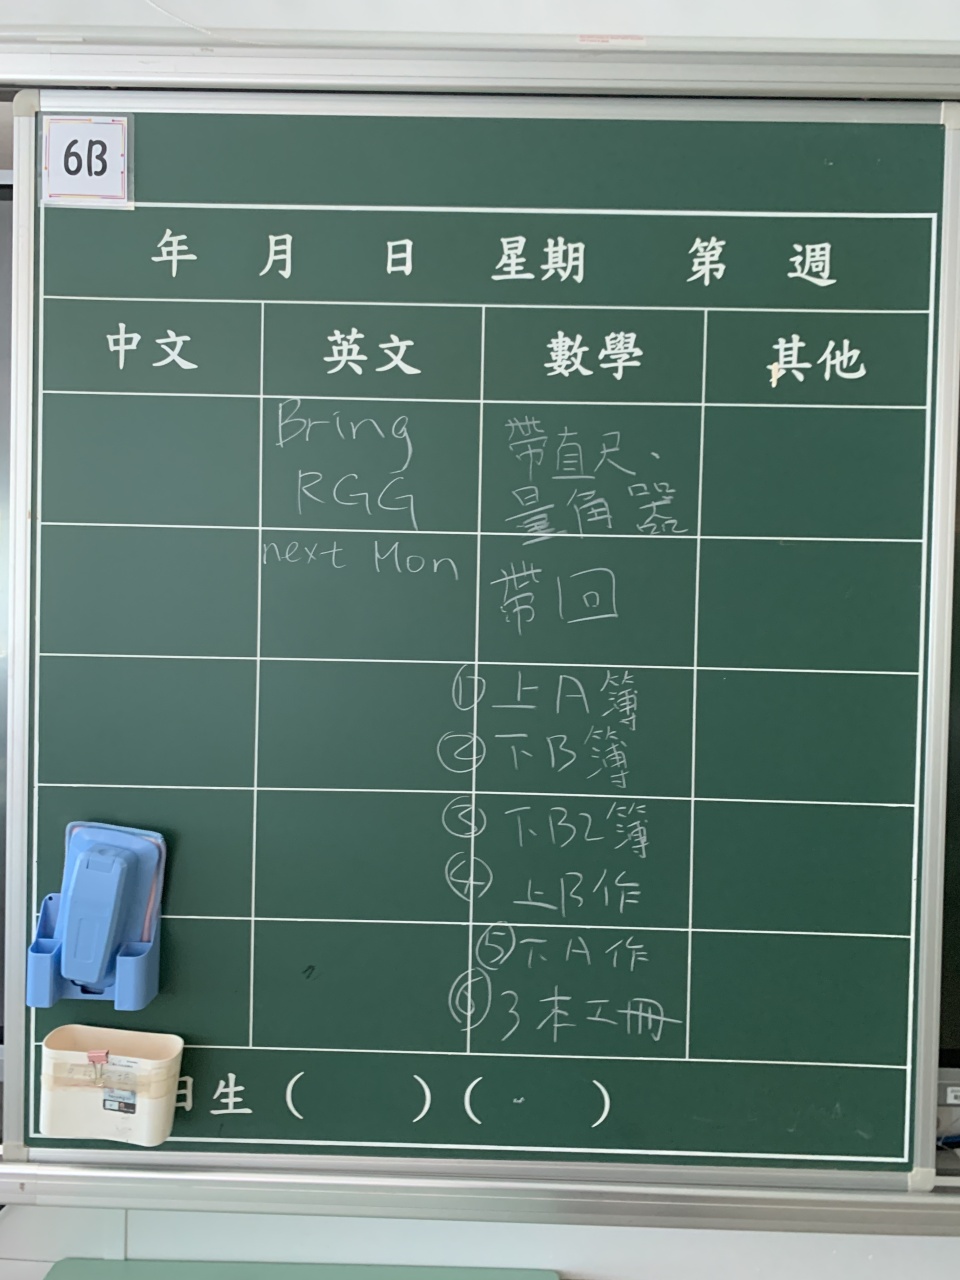 6B
年 月 日 星期 第 週
中文 英文 數學 其他
Bring
RGG
next Mon
帶直尺、
量角器
帶回
① 上A簿
② 下B簿
③ 下B2簿
④ 上B作
⑤ 下A作
⑥ 3本工冊
日生 ( ) ( )